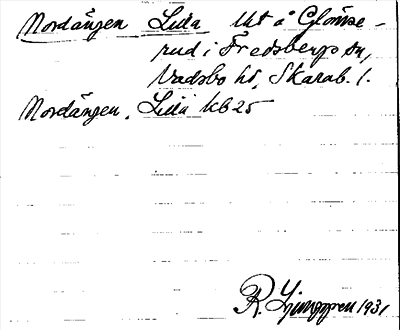 Nordängen Lida Ut å Glömse-
rud i Fredsbergs sn,
Vadsbo hd, Skarab. l.
Nordängen, Lida kb 25
R. Ljunggren 1931